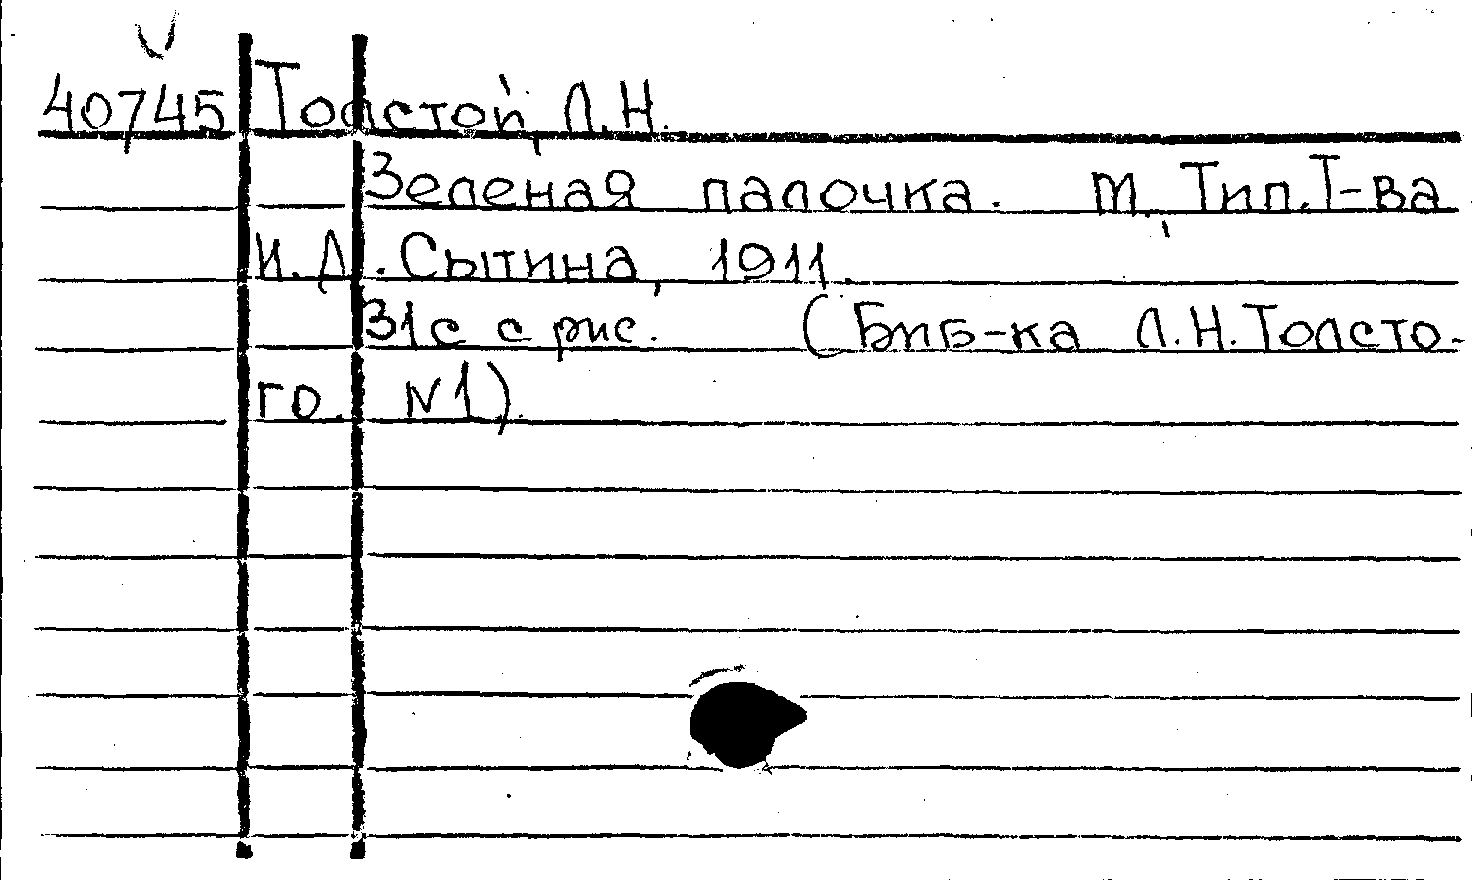 40745 Толстой, Л.Н.
Зеленая палочка. М., Тип. Т-ва
И.Д. Сытина, 1911.
31с с рис. (Биб-ка Л.Н.Толсто-
го. N1).